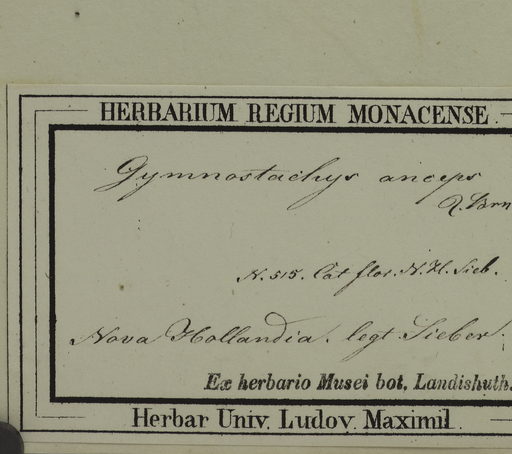 HERBARIUM REGIUM MONACENSE.
Gymnostachys anceps
R. Brn
N. 515. Cat flor. N. H. Sieb.
Nova Hollandia. legt Sieber.
Ex herbario Musei bot. Landishuth.
Herbar Univ. Ludov. Maximil.